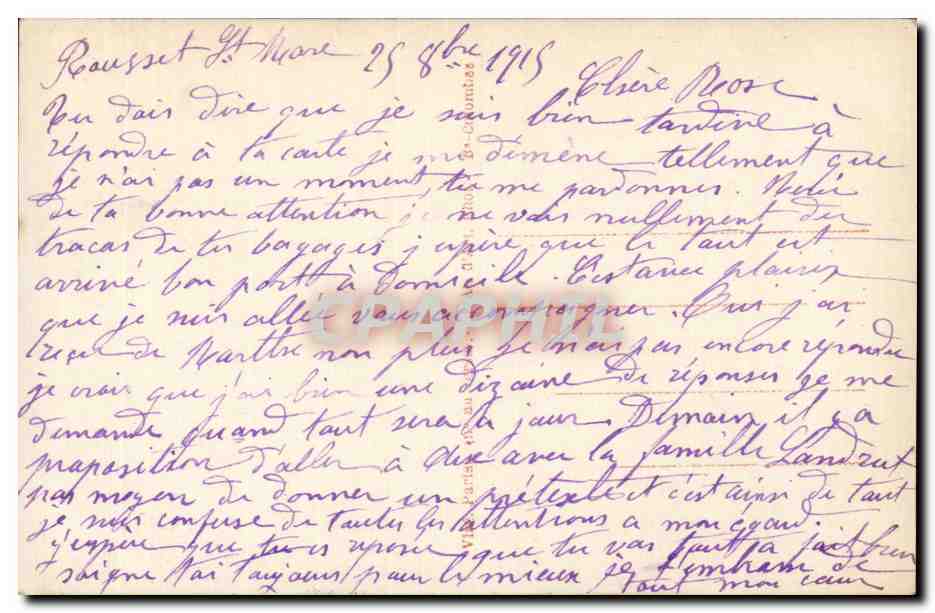 Rousset St Mare 25 8bre 1915
Chère Rose
Tu dois dire que je suis bien tardive à
répondre à ta carte je me démène tellement que
je n'ai pas un moment, tu me pardonnes. Merci
de ta bonne attention je ne vais nullement du
tracas de tes bagages j'espère que le tout est
arrivé bon port à Domicile. C'est avec plaisir
que je suis allée vous accompagner. Oui j'ai
reçu de Marthe non plus je n'ai pas encore répondu
je crois que j'ai bien une dizaine de réponses je me
demande quand tout sera à jour. Demain il y a
proposition d'aller à Aix avec la famille Landrut
pas moyen de donner un prétexte et c'est ainsi de tout
je suis confuse de toutes les attentions à mon égard.
j'espère que tu es reposée que tu vas tout à fait bien
soigne toi toujours pour le mieux je t'embrasse de
tout mon cœur
CPARAMA